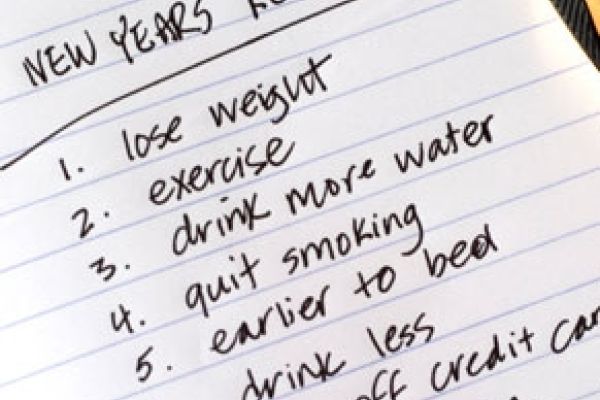 NEW YEARS
1. lose weight
2. exercise
3. drink more water
4. quit smoking
5. earlier to bed
drink less
off credit car